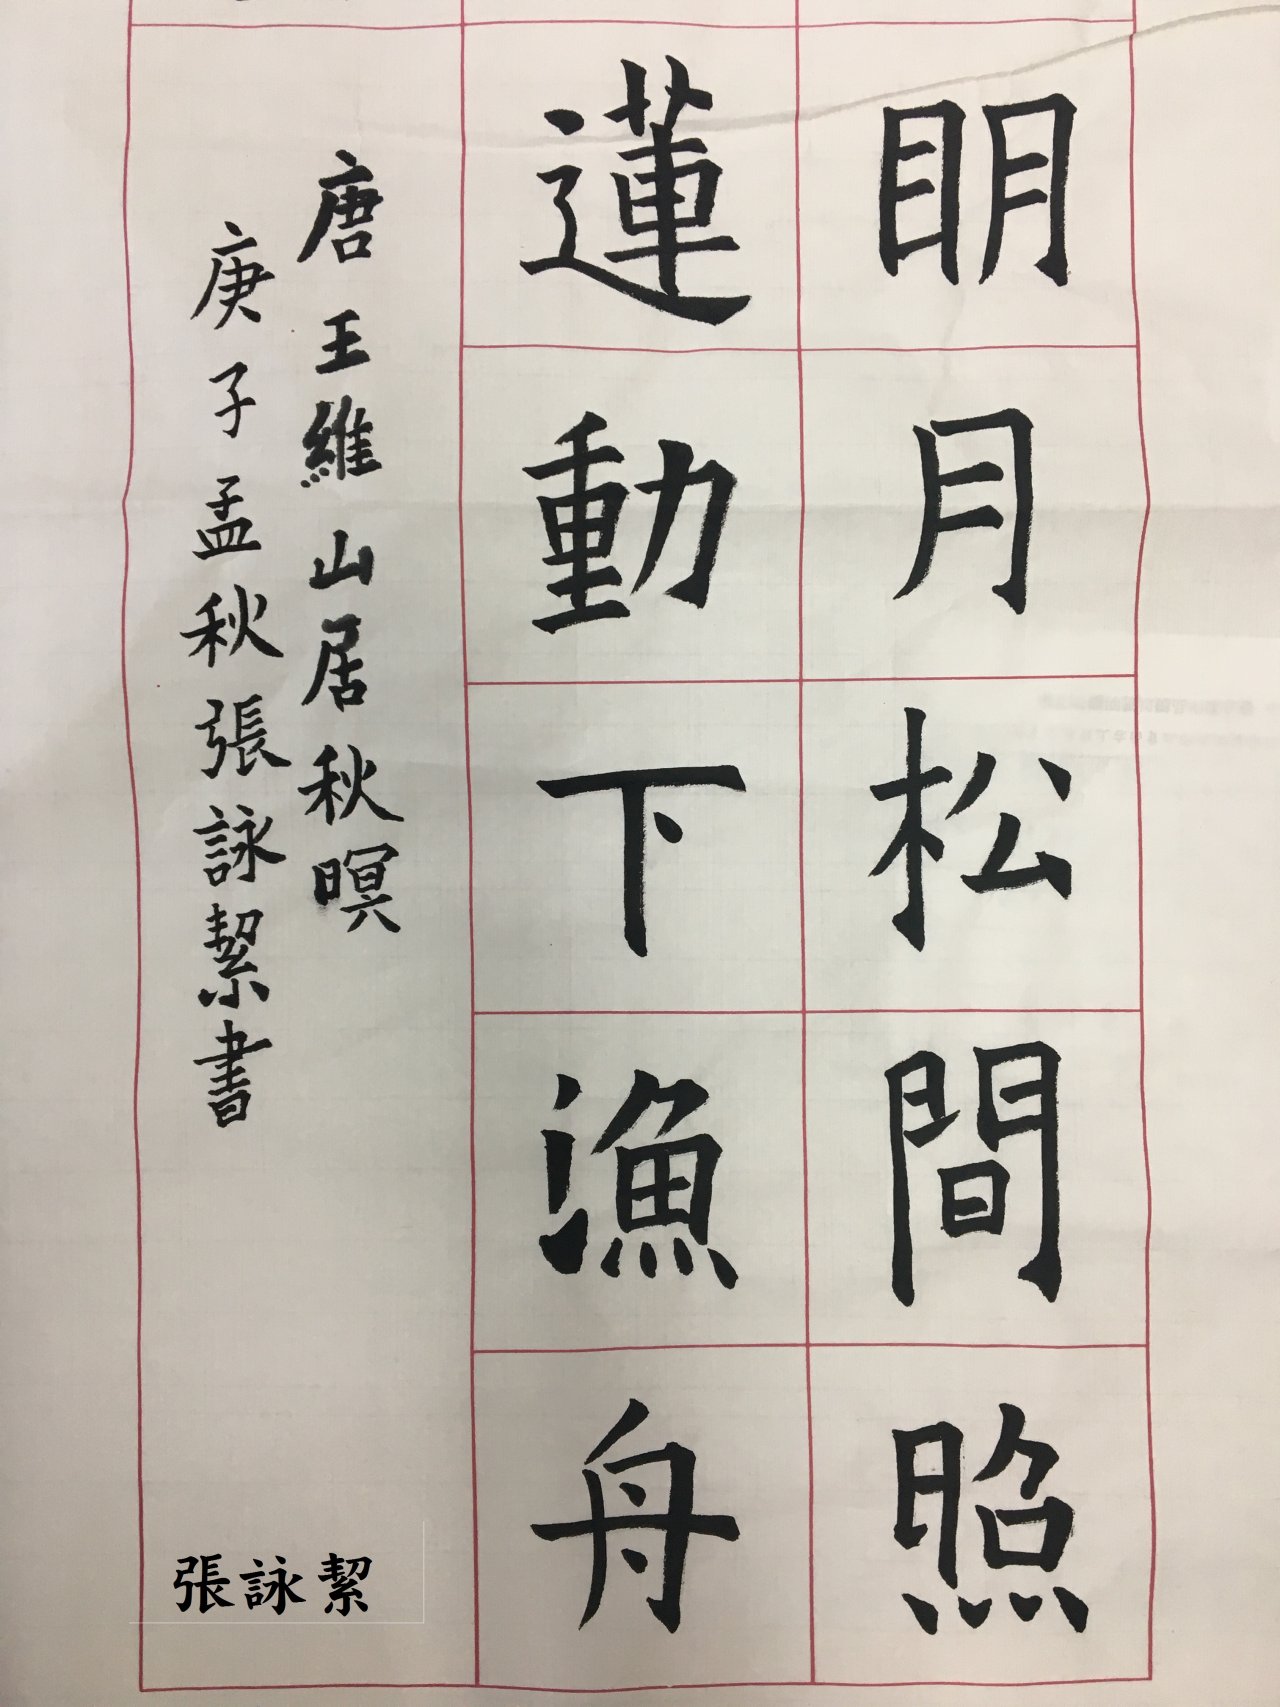 明月松間照
蓮動下漁舟
唐王維山居秋暝
庚子孟秋張詠絜書
張詠絜